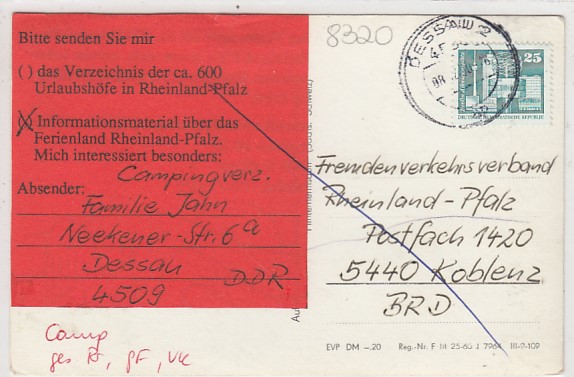 8320
Bitte senden Sie mir
( ) das Verzeichnis der ca. 600
Urlaubshöfe in Rheinland-Pfalz
(X) Informationsmaterial über das
Ferienland Rheinland-Pfalz.
Mich interessiert besonders:
Campingverz.
Absender:
Familie Jahn
Neekener-Str. 6a
Dessau DDR
4509
DESSAU 2
25
DEUTSCHE DEMOKRATISCHE REPUBLIK
Fremdenverkehrsverband
Rheinland-Pfalz
Postfach 1420
5440 Koblenz
BRD
Camp
EVP DM –.20 Reg.-Nr. F III 25-60 J 796 III-9-109